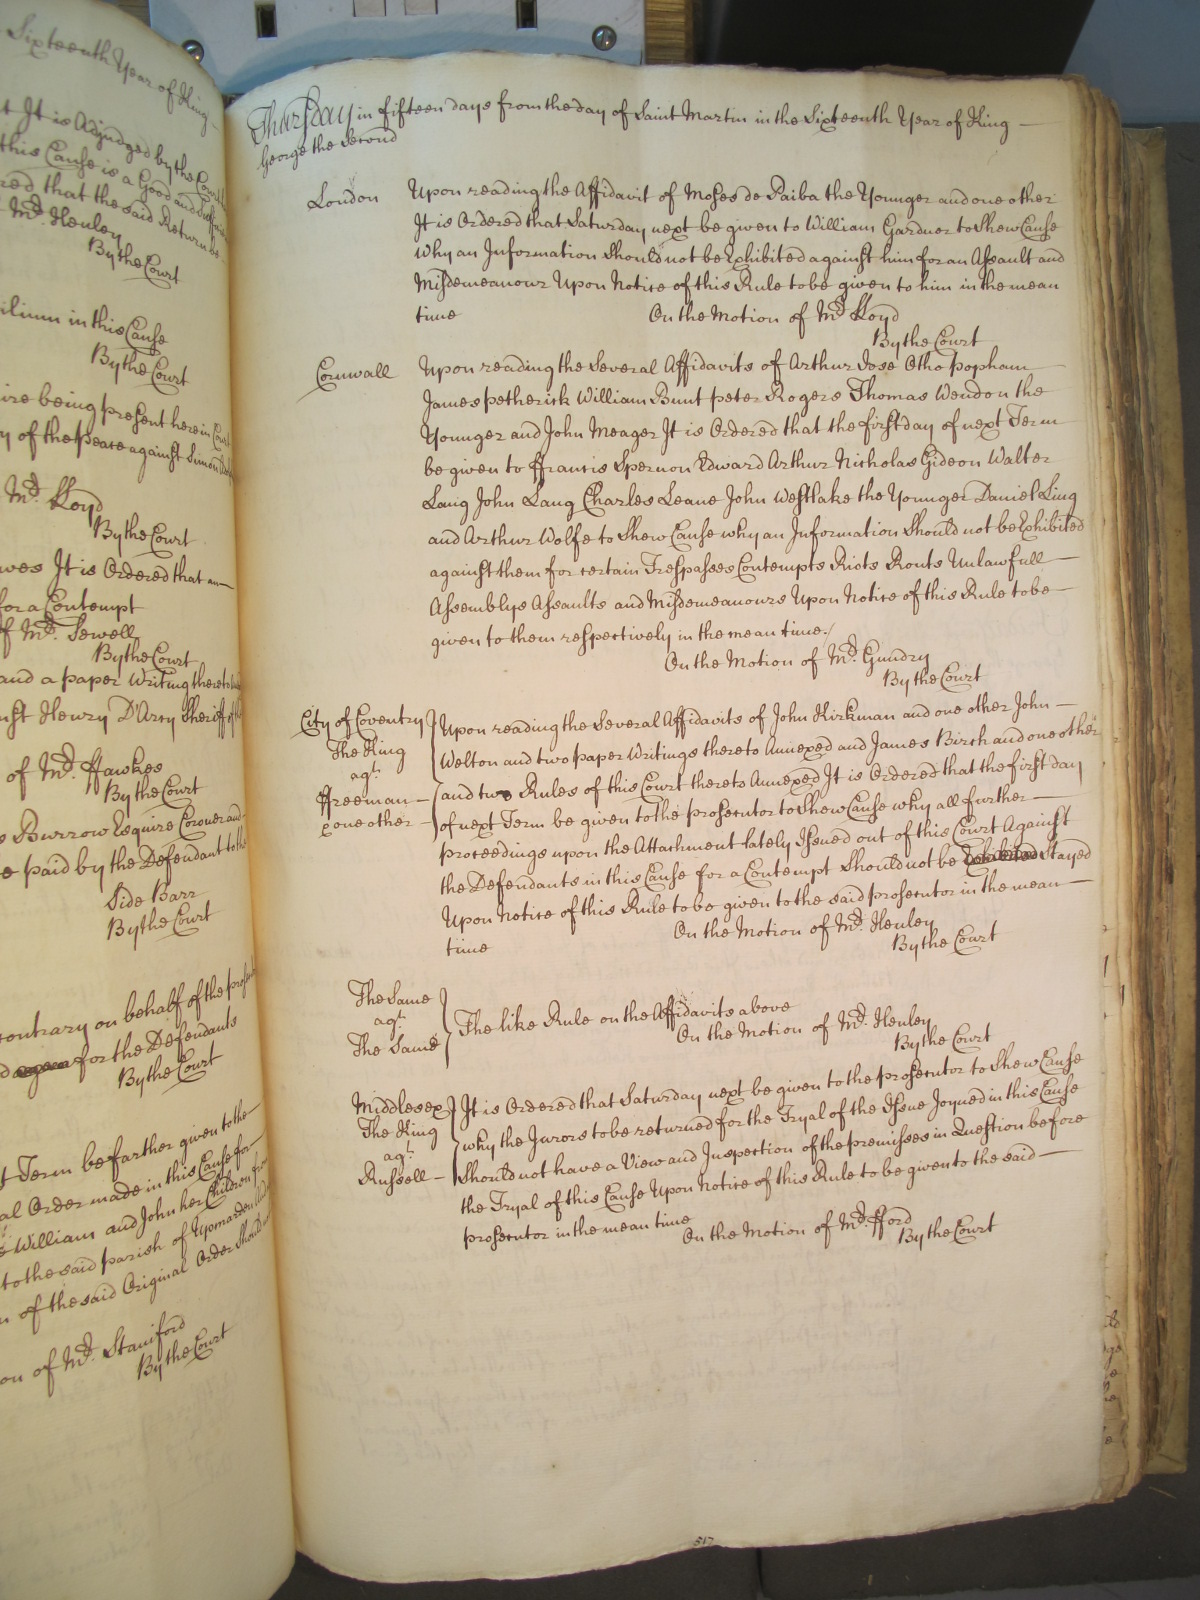 Sixteenth Year of King
t It is Adjudged by the Court
this Cause is a Good and
red that the said Return be
Mr. Henley
By the Court
in this Cause
By the Court
ire being present here in Court
y of the peace against Simon
Mr. Lloyd
By the Court
wes It is Ordered that an
for a Contempt
of Mr. Sewell
By the Court
and a paper Writing thereto
nst Henry D'Arcy Sheriff of
of Mr. Hawkes
By the Court
s Burrow Esquire Coroner and
e paid by the Defendant to the
Side Barr
By the Court
contrary on behalf of the
for the Defendants
By the Court
t Term be farther given to the
al Order made in this Cause for
s William and John her Children from
to the said parish of Upmarden
n of the said Original Order should
on of Mr. Staniford
By the Court
Thursday in fifteen days from the day of Saint Martin in the Sixteenth Year of King
George the Second
London Upon reading the Affidavit of Moses de Paiba the Younger and one other
It is Ordered that Saturday next be given to William Gardner to Shew Cause
Why an Information Should not be Exhibited against him for an Assault and
Misdemeanour Upon Notice of this Rule to be given to him in the mean
time On the Motion of Mr. Lloyd
By the Court
Cornwall Upon reading the Several Affidavits of Arthur Dose Otho popham
James petherick William Bunt peter Rogers Thomas Wendon the
Younger and John Meager It is Ordered that the first day of next Term
be given to ffrancis Spernon Edward Arthur Nicholas Gideon Walter
Lang John Lang Charles Leane John Westlake the Younger Daniel Ling
and Arthur Wolfe to Shew Cause why an Information Should not be Exhibited
against them for certain Trespasses Contempts Riots Routs Unlawfull
Assemblys Assaults and Misdemeanours Upon Notice of this Rule to be
given to them respectively in the mean time
On the Motion of Mr. Gundry
By the Court
City of Coventry Upon reading the Several Affidavits of John Kirkman and one other John
The King Welton and two paper Writings thereto Annexed and James Birch and one other
agt.
ffreeman and two Rules of this Court thereto Annexed It is Ordered that the first day
& one other of next Term be given to the prosecutor to Shew Cause why all further
proceedings upon the Attachment lately Issued out of this Court Against
the Defendants in this Cause for a Contempt Should not be Stayed
Upon Notice of this Rule to be given to the said prosecutor in the mean
time On the Motion of Mr. Henley
By the Court
The Same
agt.
The Same The like Rule on the Affidavits above
On the Motion of Mr. Henley
By the Court
Middlesex It is Ordered that Saturday next be given to the prosecutor to Shew Cause
The King why the Jurors to be returned for the Tryal of the Issue Joyned in this Cause
agt.
Russell Should not have a View and Inspection of the premisses in Question before
the Tryal of this Cause Upon Notice of this Rule to be given to the said
prosecutor in the mean time
On the Motion of Mr. fford
By the Court
517